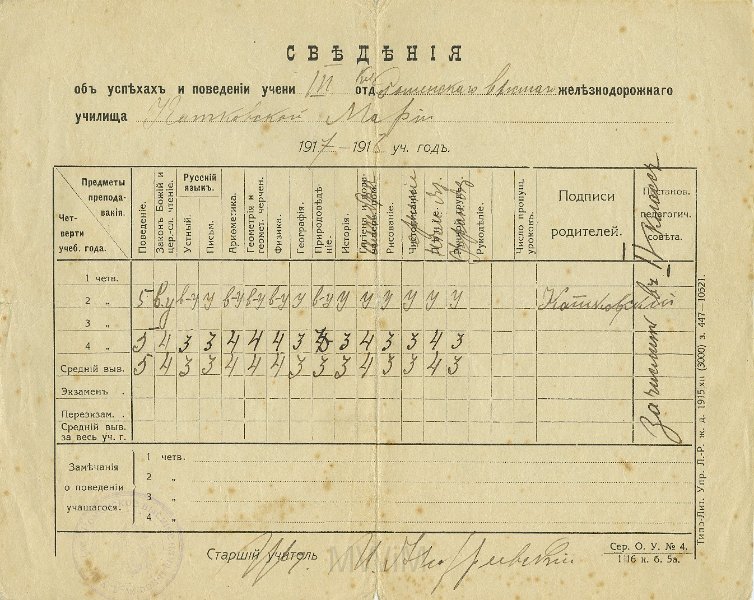 СВѢДѢНІЯ
объ успѣхахъ и поведеніи учени III отд Роменскаго желѣзнодорожнаго
училища Катковской Маріи
1917–1918 уч. годъ.
Предметы преподаванія.
Четверти учеб. года.
Поведеніе.
Законъ Божій и цер.-сл. чтеніе.
Русскій языкъ.
Устный.
Письм.
Ариѳметика.
Геометрія и геомет. черчен.
Физика.
Географія.
Природовѣдѣніе.
Исторія.
Рисованіе.
Рукодѣліе.
Число пропущ. уроковъ.
Подписи родителей.
Постанов. педагогич. совѣта.
1 четв.
2 „ 5 в.у в-у у в-у в-у в-у у в-у у у у у у у Катковскій
3 „
4 „ 5 4 3 3 4 4 4 3 3 4 3 3 4 3
Средній выв. 5 4 3 3 4 4 4 3 3 3 4 3 3 4 3
Экзаменъ
Переэкзам.
Средній выв. за весь уч. г.
Зачислить въ IV классъ
Замѣчанія о поведеніи учащагося.
1 четв.
2 „
3 „
4 „
Старшій учитель
Сер. О. У. № 4.
1116 к. б. 5а.
Типо-Лит. Упр. Л.-Р. ж. д. 1915.XII (3000) з. 447—10521.